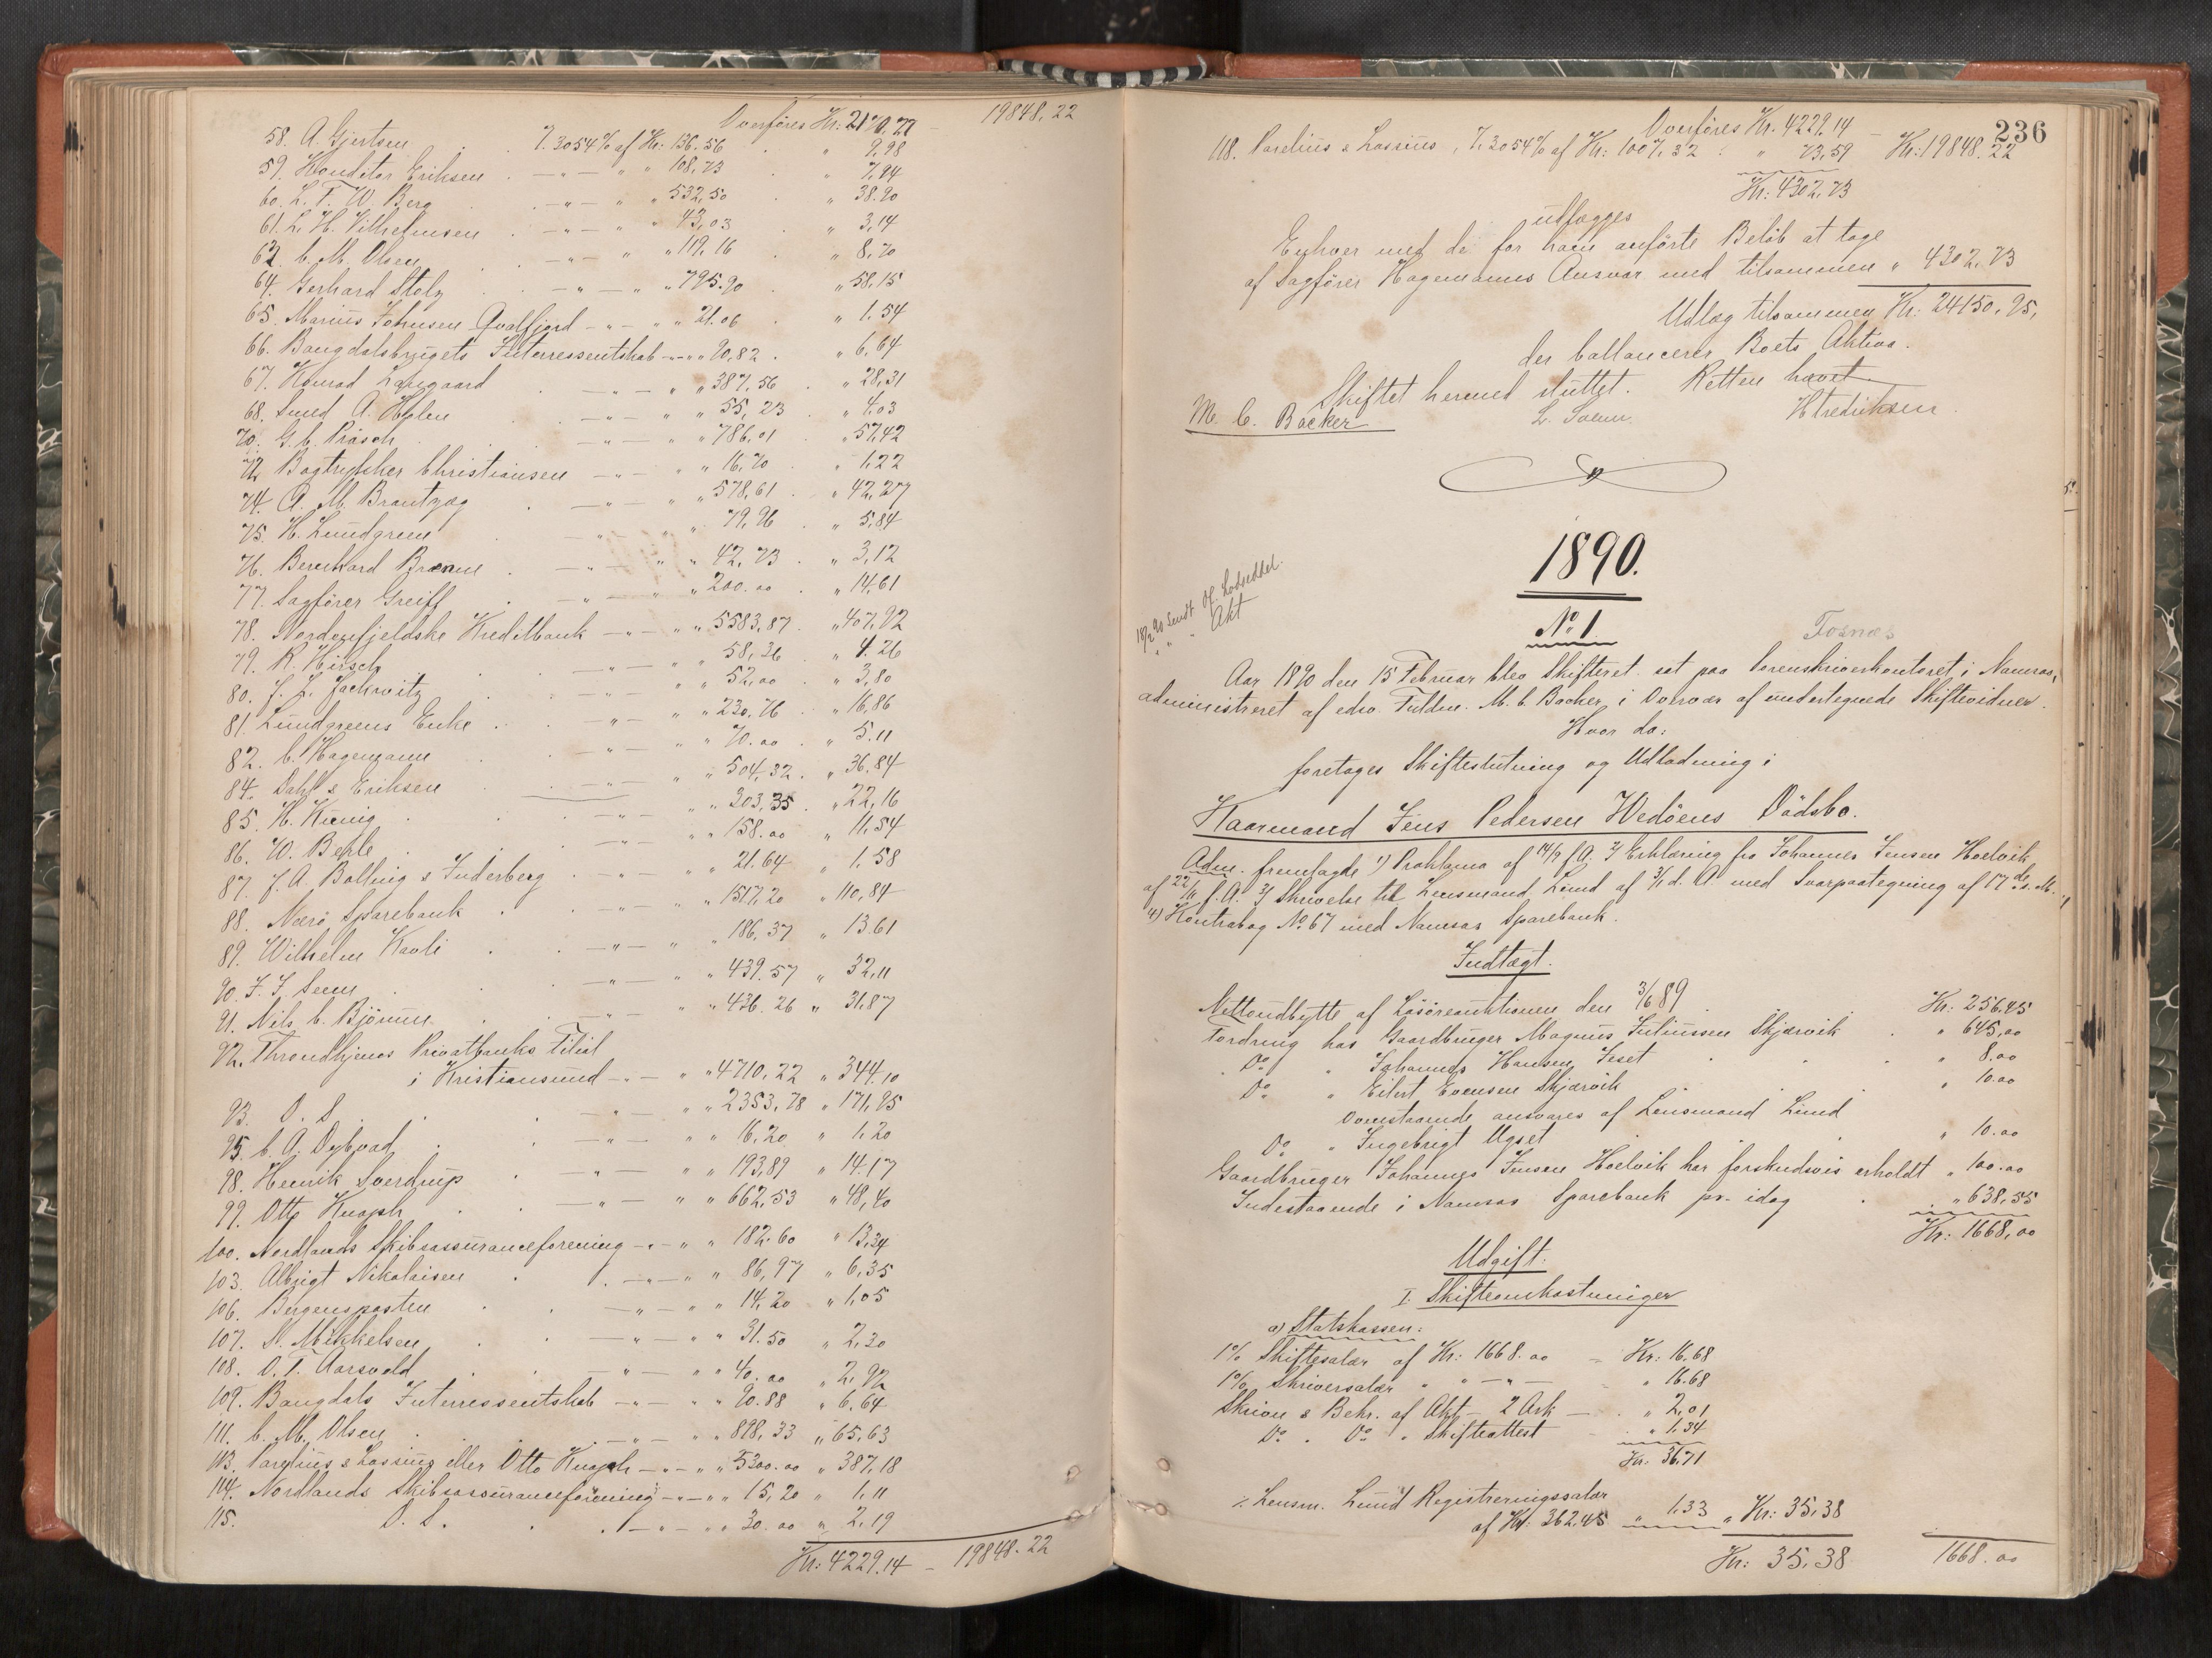 Overføres Kr: 2170,77 - 19848,22
58. A. Gjertsen . 7.3054% af Kr: 136.56 . " 9,98
59. Konditor Eriksen . -"- " " 108,73 . " 7,94
60. L. T. W. Berg . -"- " " 532,50 . " 38.90
61. L. H. Vilhelmsen . -"- " " 43,03 . " 3,14
62. C. M. Olsen . -"- " " 119,16 . " 8,70
64. Gerhard Stolz . -"- " " 795.90 . " 58,15
65. Marius Johnsen Qvalfjord -"- " " 21.06 . " 1.54
66. Bangdalsbrugets Interressentskab -"- " " 90,82 . " 6,64
67. Konrad Langaard . -"- " " 387,56 . " 28,31
68. Smed A. Holen . -"- " " 55,23 . " 4,03
70. G. C. Präsch . -"- " " 786,01 . " 57,42
72. Bogtrykker Christiansen -"- " " 16,70 . " 1,22
74. A. M. Brantzæg . -"- " " 578,61 . " 42,27
75. H. Lundgreen -"- " " 79,96 . " 5,84
76. Bernhard Brænne . -"- " " 42,73 . " 3,12
77. Sagfører Greiff . -"- " " 200.00 . " 14,61
78. Nordenfjeldske Kreditbank -"- " " 5583,87 . " 407,92
79. R. Hirsch . -"- " " 58,36 . " 4.26
80. J. L. Jachwitz . -"- " " 52,00 . " 3,80
81. Lundgreens Enke . -"- " " 230,76 . " 16,86
82. C. Hagemann . -"- " " 70.00 . " 5.11
84. Dahl & Eriksen . -"- " " 504,32 . " 36.84
85. H. Kunig . -"- " " 303,35 . " 22,16
86. W. Behle . -"- " " 158.00 " 11,54
87. J. A. Bolling s Inderberg . -"- " " 21.64 " 1.58
88. Nærö Sparebank . -"- " " 1517,20 " 110,84
89. Wilhelm Kavli . -"- " " 186,37 " 13.61
90. J. J. Senn . -"- " " 439.57 " 32,11
91. Nils C. Bjönnes . -"- " " 436.26 " 31,87
92. Throndhjems Privatbanks Filial
i Kristiansund -"- " " 4710,22 " 344.10
93. D. S. . -"- " " 2353,78 " 171,95
95. C. A. Dybvad . -"- " " 16,20 " 1,20
98. Henrik Sverdrup . -"- " " 193,89 " 14.17
99. Otto Knoph . -"- " " 662,53 " 48,40
100. Nordlands Skibsassuranceforening -"- " " 182.60 " 13,34
103. Albrigt Nikolaisen . -"- " " 86,97 " 6,35
106. Bergensposten . -"- " " 14,20 " 1,05
107. S. Mikkelsen . -"- " " 31.50 " 2,30
108. O. T. Aarsvold . -"- " " 40.00 " 2,92
109. Bangdals Interressentskab -"- " " 90.88 " 6.64
111. C. M. Olsen . -"- " " 898,33 " 65,63
113. Parelius & Lossius eller Otto Knoph -"- " " 5300.00 " 387,18
114. Nordlands Skibsassuranceforening -"- " " 15,20 " 1,11
115. D. S. . -"- " " 30.00 " 2,19
Kr: 4229.14 - 19848.22
236
Overføres Kr. 4229,14 - Kr: 19848.22
118. Parelius & Lossius, 7,3054% af Kr: 1007,32 . " 73,59
Kr: 4302,73
udlægges
Enhver med de for ham anförte Belöb at tage
af Sagförer Hagemanns Ansvar med tilsammen " 4302,73
Udlæg tilsammen Kr: 24150,95,
der ballancerer Boets Aktiva.
Skiftet hermed sluttet. Retten hævet.
M. C. Backer L. Svenn. H Fredriksen.
1890.
18/2 90 sendt Of. Lodseddel.
" " Akt
No 1. Fosnæs
Aar 1890 den 15 Februar blev Skifteret sat paa Sorenskriverkontoret i Namsos,
administreret af edsv. Fuldm. M. C. Backer, i Overvær af undertegnede Skiftevidner.
Hvor da:
foretages Skifteslutning og Udlodning i
Kaarmand Jens Pedersen Wedöens Dödsbo.
Adm. fremlagde 1) Proklama af 14/9 f. A. 2) Erklæring fra Johannes Jensen Hoelvik
af 22/11 f. A. 3) Skrivelse til Lensmand Lund af 3/1 d. A. med Svarpaategning af 17de s. M.,
4) Kontrabog No 67 med Namsos Sparebank.
Indtægt.
Nettoudbytte af Lösöreauktionen den 3/6 89 . Kr: 256.45
Fordring hos Gaardbruger Magnus Juliussen Skjærvik . " 645,00
Do " Johannes Hansen Jeset . " 8.00
Do " Eilert Evensen Skjærvik . " 10.00
Ovenstaaende ansvares af Lensmand Lund
Do " Ingebrigt Ugset . " 10.00
Gaardbruger Johannes Jensen Hoelvik har forskudsvis erholdt " 100.00
Indestaaende i Namsos Sparebank pr. idag . " 638,55
Kr: 1668,00
Udgift.
I. Skifteomkostninger
a) Statskassen:
1% Skiftesalær af Kr: 1668.00 = Kr: 16.68
1% Skriversalær " " -"- - " 16.68
Skrive & Bekr. af Akt - 2 Ark - . " 2,01
Do . Do " Skifteattest . " 1,34
Kr. 36,71
÷ Lensm. Lund Registreringssalær
af Kr: 362.45 " 1,33 " Kr: 35,38
Kr: 35,38 1668.00